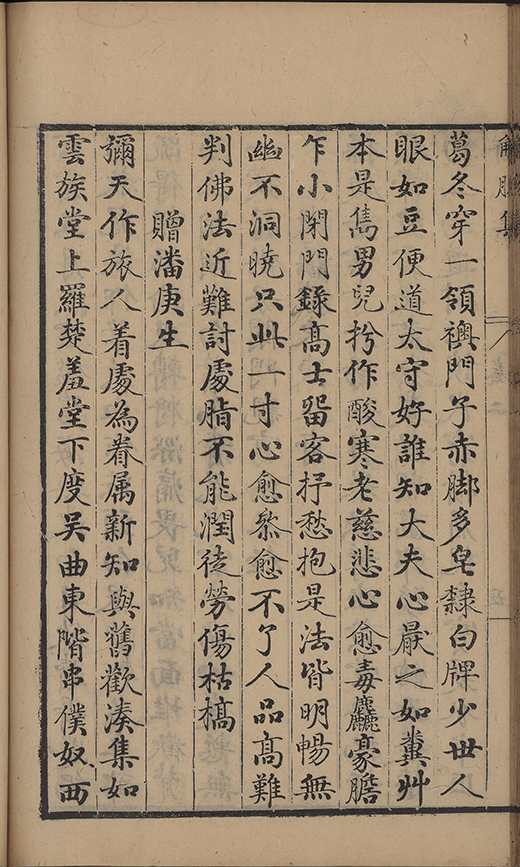 解脫集
葛冬穿一領襖門子赤脚多皂隸白牌少世人
眼如豆便道太守好誰知大夫心厭之如糞艸
本是雋男兒拎作酸寒老慈悲心愈毒麤豪膽
乍小閉門錄高士留客抒愁抱是法皆明暢無
幽不洞曉只此一寸心愈叅愈不了人品高難
判佛法近難討處脂不能潤徒勞傷枯槁
贈潘庚生
彌天作旅人着處為眷属新知與舊歡湊集如
雲族堂上羅楚羞堂下度吴曲東階串僕奴西